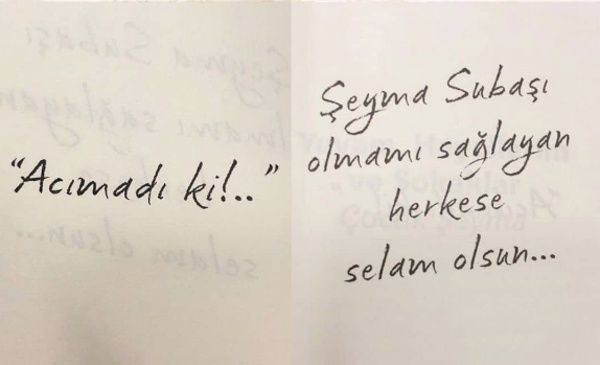 "Acımadı ki!.."
Şeyma Subaşı
olmamı sağlayan
herkese
selam olsun...